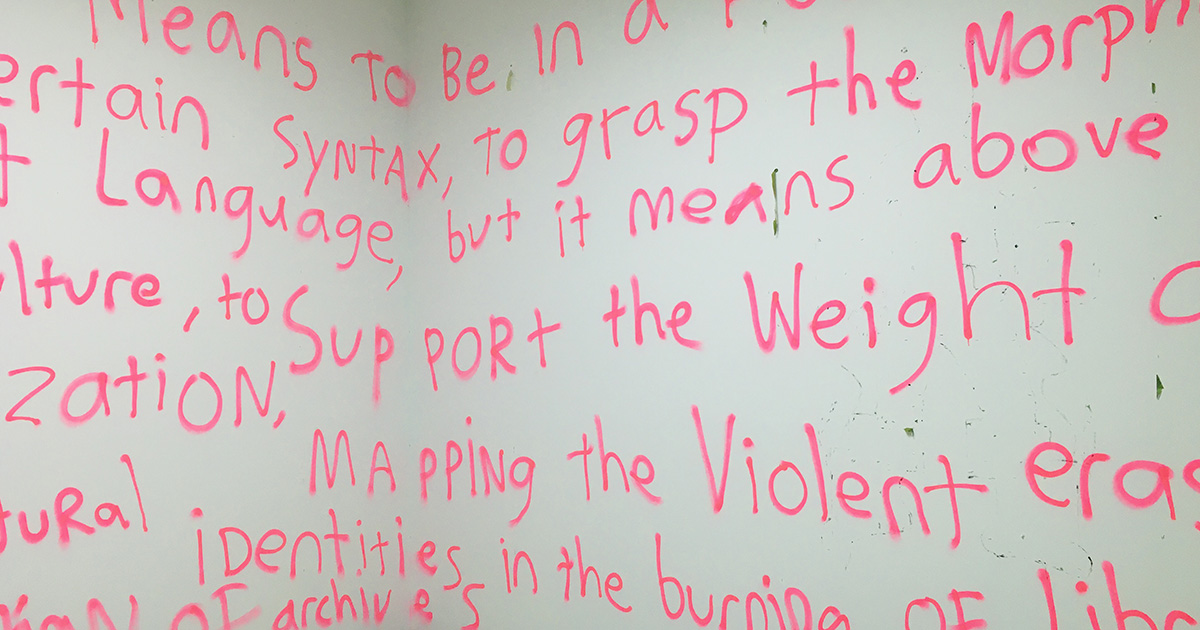 Means To Be In a
ertain SYNTAX, To grasp the Morph
t Language, but it means above
lture, to SUPPORT the Weight
ZatiON, MAPPiNg the Violent eras
tuRal iDentities in the burning OF libr
OF archives